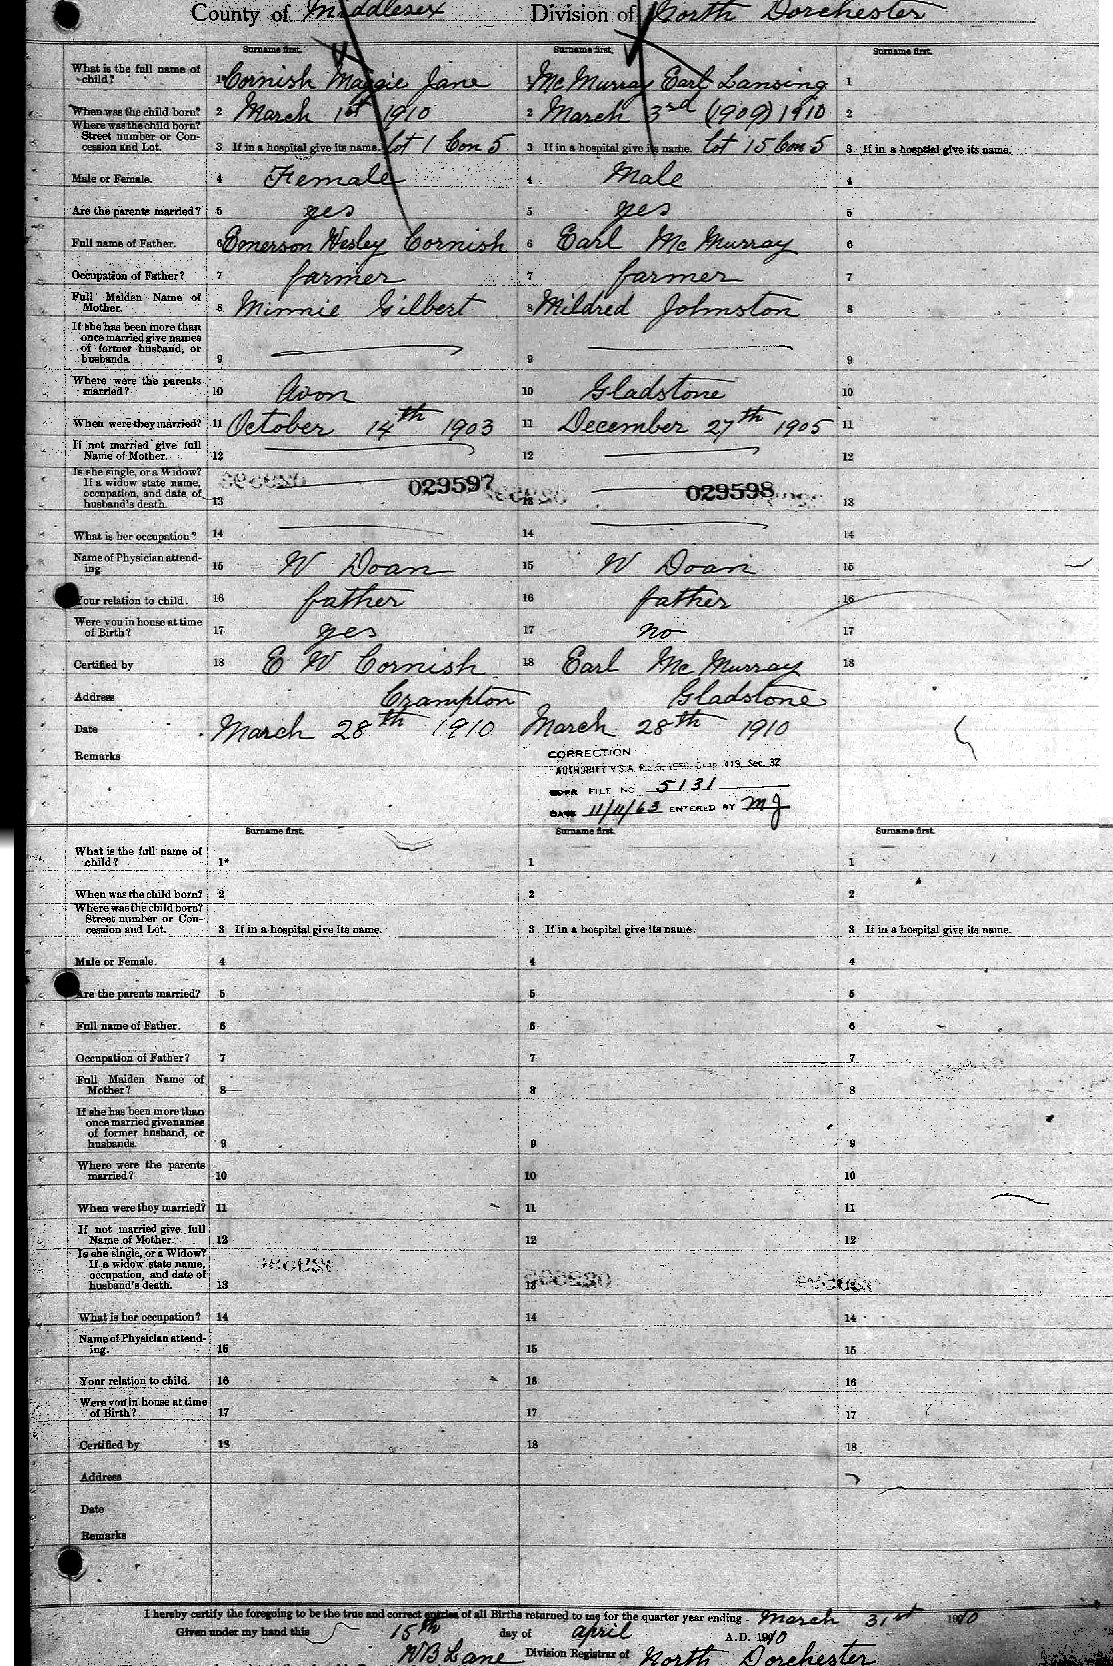 County of Middlesex Division of North Dorchester
Surname first. Surname first. Surname first.
What is the full name of child? 1 Cornish Maggie Jane 1 McMurray Earl Lansing 1
When was the child born? 2 March 1st 1910 2 March 3rd (1909) 1910 2
Where was the child born? Street number or Concession and Lot. 3 If in a hospital give its name. Lot 1 Con 5 3 If in a hospital give its name. Lot 15 Con 5 3 If in a hospital give its name.
Male or Female. 4 Female 4 Male 4
Are the parents married? 5 yes 5 yes 5
Full name of Father. 6 Emerson Wesley Cornish 6 Earl McMurray 6
Occupation of Father? 7 farmer 7 farmer 7
Full Maiden Name of Mother. 8 Minnie Gilbert 8 Mildred Johnston 8
If she has been more than once married give names of former husband, or husbands. 9 9 9
Where were the parents married? 10 Avon 10 Gladstone 10
When were they married? 11 October 14th 1903 11 December 27th 1905 11
If not married give full Name of Mother. 12 12 12
Is she single, or a Widow? If a widow state name, occupation, and date of husband's death. 13 029597 13 029598 13
What is her occupation? 14 14 14
Name of Physician attending 15 W Doan 15 W Doan 15
Your relation to child. 16 father 16 father 16
Were you in house at time of Birth? 17 yes 17 no 17
Certified by 18 E W Cornish 18 Earl McMurray 18
Address Crampton Gladstone
Date March 28th 1910 March 28th 1910
Remarks CORRECTION
AUTHORITY V.S.A. Sec. 32
FILE NO 5131
DATE 11/11/63 ENTERED BY MJ
Surname first. Surname first. Surname first.
What is the full name of child? 1* 1 1
When was the child born? 2 2 2
Where was the child born? Street number or Concession and Lot. 3 If in a hospital give its name. 3 If in a hospital give its name. 3 If in a hospital give its name.
Male or Female. 4 4 4
Are the parents married? 5 5 5
Full name of Father. 6 6 6
Occupation of Father? 7 7 7
Full Maiden Name of Mother? 8 8 8
If she has been more than once married give names of former husband, or husbands. 9 9 9
Where were the parents married? 10 10 10
When were they married? 11 11 11
If not married give full Name of Mother. 12 12 12
Is she single, or a Widow? If a widow state name, occupation, and date of husband's death. 13 13 13
What is her occupation? 14 14 14
Name of Physician attending. 15 15 15
Your relation to child. 16 16 16
Were you in house at time of Birth? 17 17 17
Certified by 18 18 18
Address
Date
Remarks
I hereby certify the foregoing to be the true and correct entries of all Births returned to me for the quarter year ending March 31st 1910
Given under my hand this 15th day of April A.D. 1910
W B Lane Division Registrar of North Dorchester